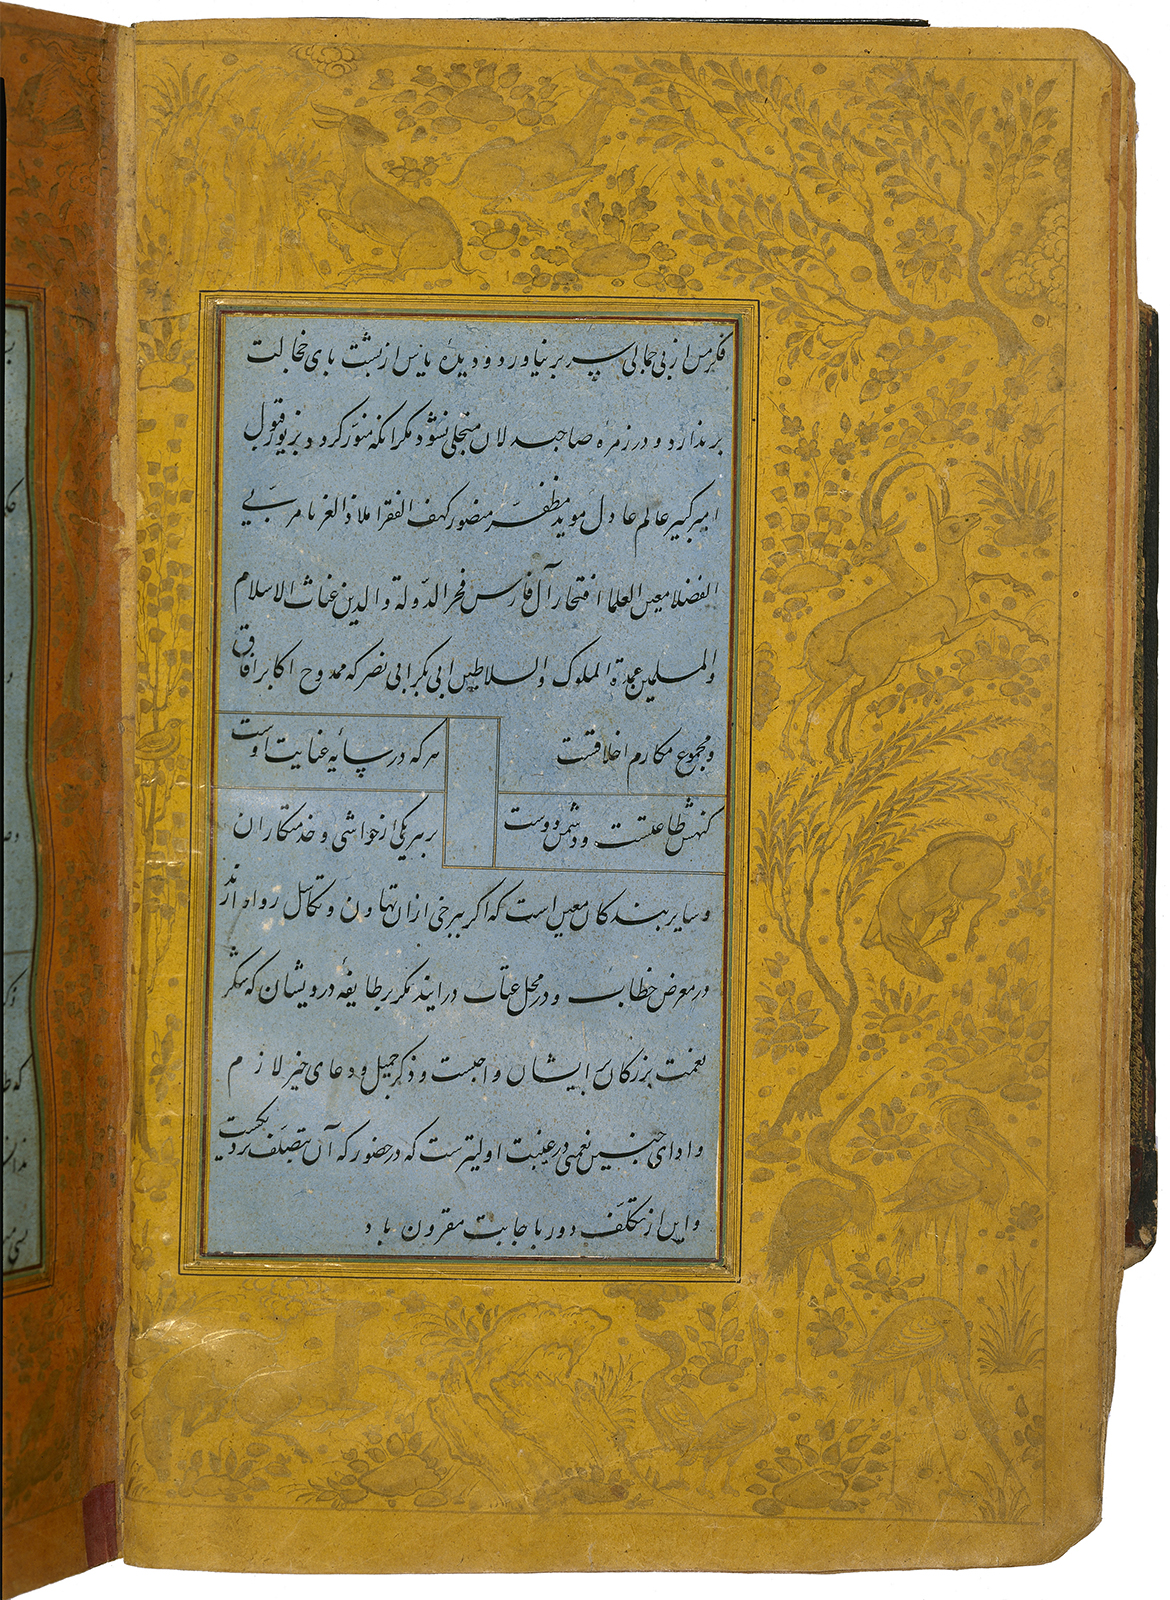 فکر من از بی جمالی سر بر نیاورد و دیدهٔ یاس از پشت پای خجالت
بر ندارد و در زمرهٔ صاحبدلان متجلی نشود مکر انکه منوّر کردد بزیور قبول
امیر کبیر عالم عادل موید مظفر منصور کهف الفقرا ملاذ الغربا مربی
الفضلا معین العلما افتخار آل فارس فخر الدّولة والدین غیاث الاسلام
والمسلمین عمدة الملوک والسلاطین ابی بکر ابی نصر که ممدوح اکابر افاق
و مجموع مکارم اخلاقست هر که در سایه عنایت اوست
کنهش طاعتست و دشمن دوست بر هر یکی از حواشی و خدمتکاران
و سایر بندکان معین است که اکر ببرخی از ان تهاون و تکاسل روا دارند
در معرض خطاب و در محل عتاب درایند مکر بر طایفهٔ درویشان که شکر
نعمت بزرکان بر ایشان واجبست و ذکر جمیل و دعای خیر لازم
و ادای چنین نعمتی در غیبت اولیترست که در حضور که آن بتصلف نزدیکست
و این از تکلّف دور باجابت مقرون باد